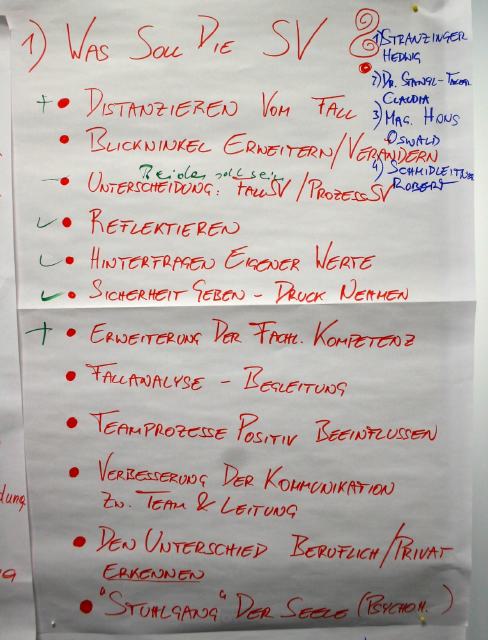 1) WAS SOLL DIE SV
1) STRANZINGER
HEDWIG
2) DR. STANGL-
CLAUDIA
3) MAG. HONS
OSWALD
4) SCHMIDLEITNER
ROBERT
+ • DISTANZIEREN VOM FALL
• BLICKWINKEL ERWEITERN/VERÄNDERN
Beides soll sein
– • UNTERSCHEIDUNG: FALLSV/PROZESSSV
✓ • REFLEKTIEREN
✓ • HINTERFRAGEN EIGENER WERTE
✓ • SICHERHEIT GEBEN – DRUCK NEHMEN
+ • ERWEITERUNG DER FACHL. KOMPETENZ
• FALLANALYSE – BEGLEITUNG
• TEAMPROZESSE POSITIV BEEINFLUSSEN
• VERBESSERUNG DER KOMMUNIKATION
ZW. TEAM & LEITUNG
• DEN UNTERSCHIED BERUFLICH/PRIVAT
ERKENNEN
• "STUHLGANG" DER SEELE (PSYCHOH.)
dung